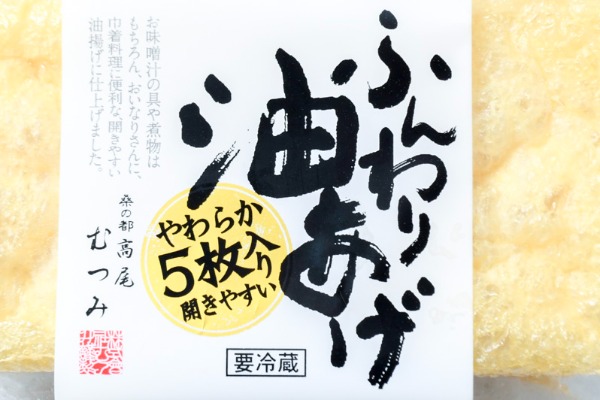 ふんわり
油あげ
お味噌汁の具や煮物は
もちろん、おいなりさんに、
巾着料理に便利な、開きやすい
油揚げに仕上げました。
やわらか
5枚入り
開きやすい
桑の都 高尾
むつみ
要冷蔵